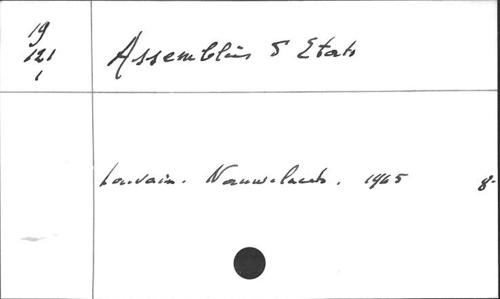 19
121
1
Assemblées & Etats
Louvain. Nauwelaerts. 1965 8°